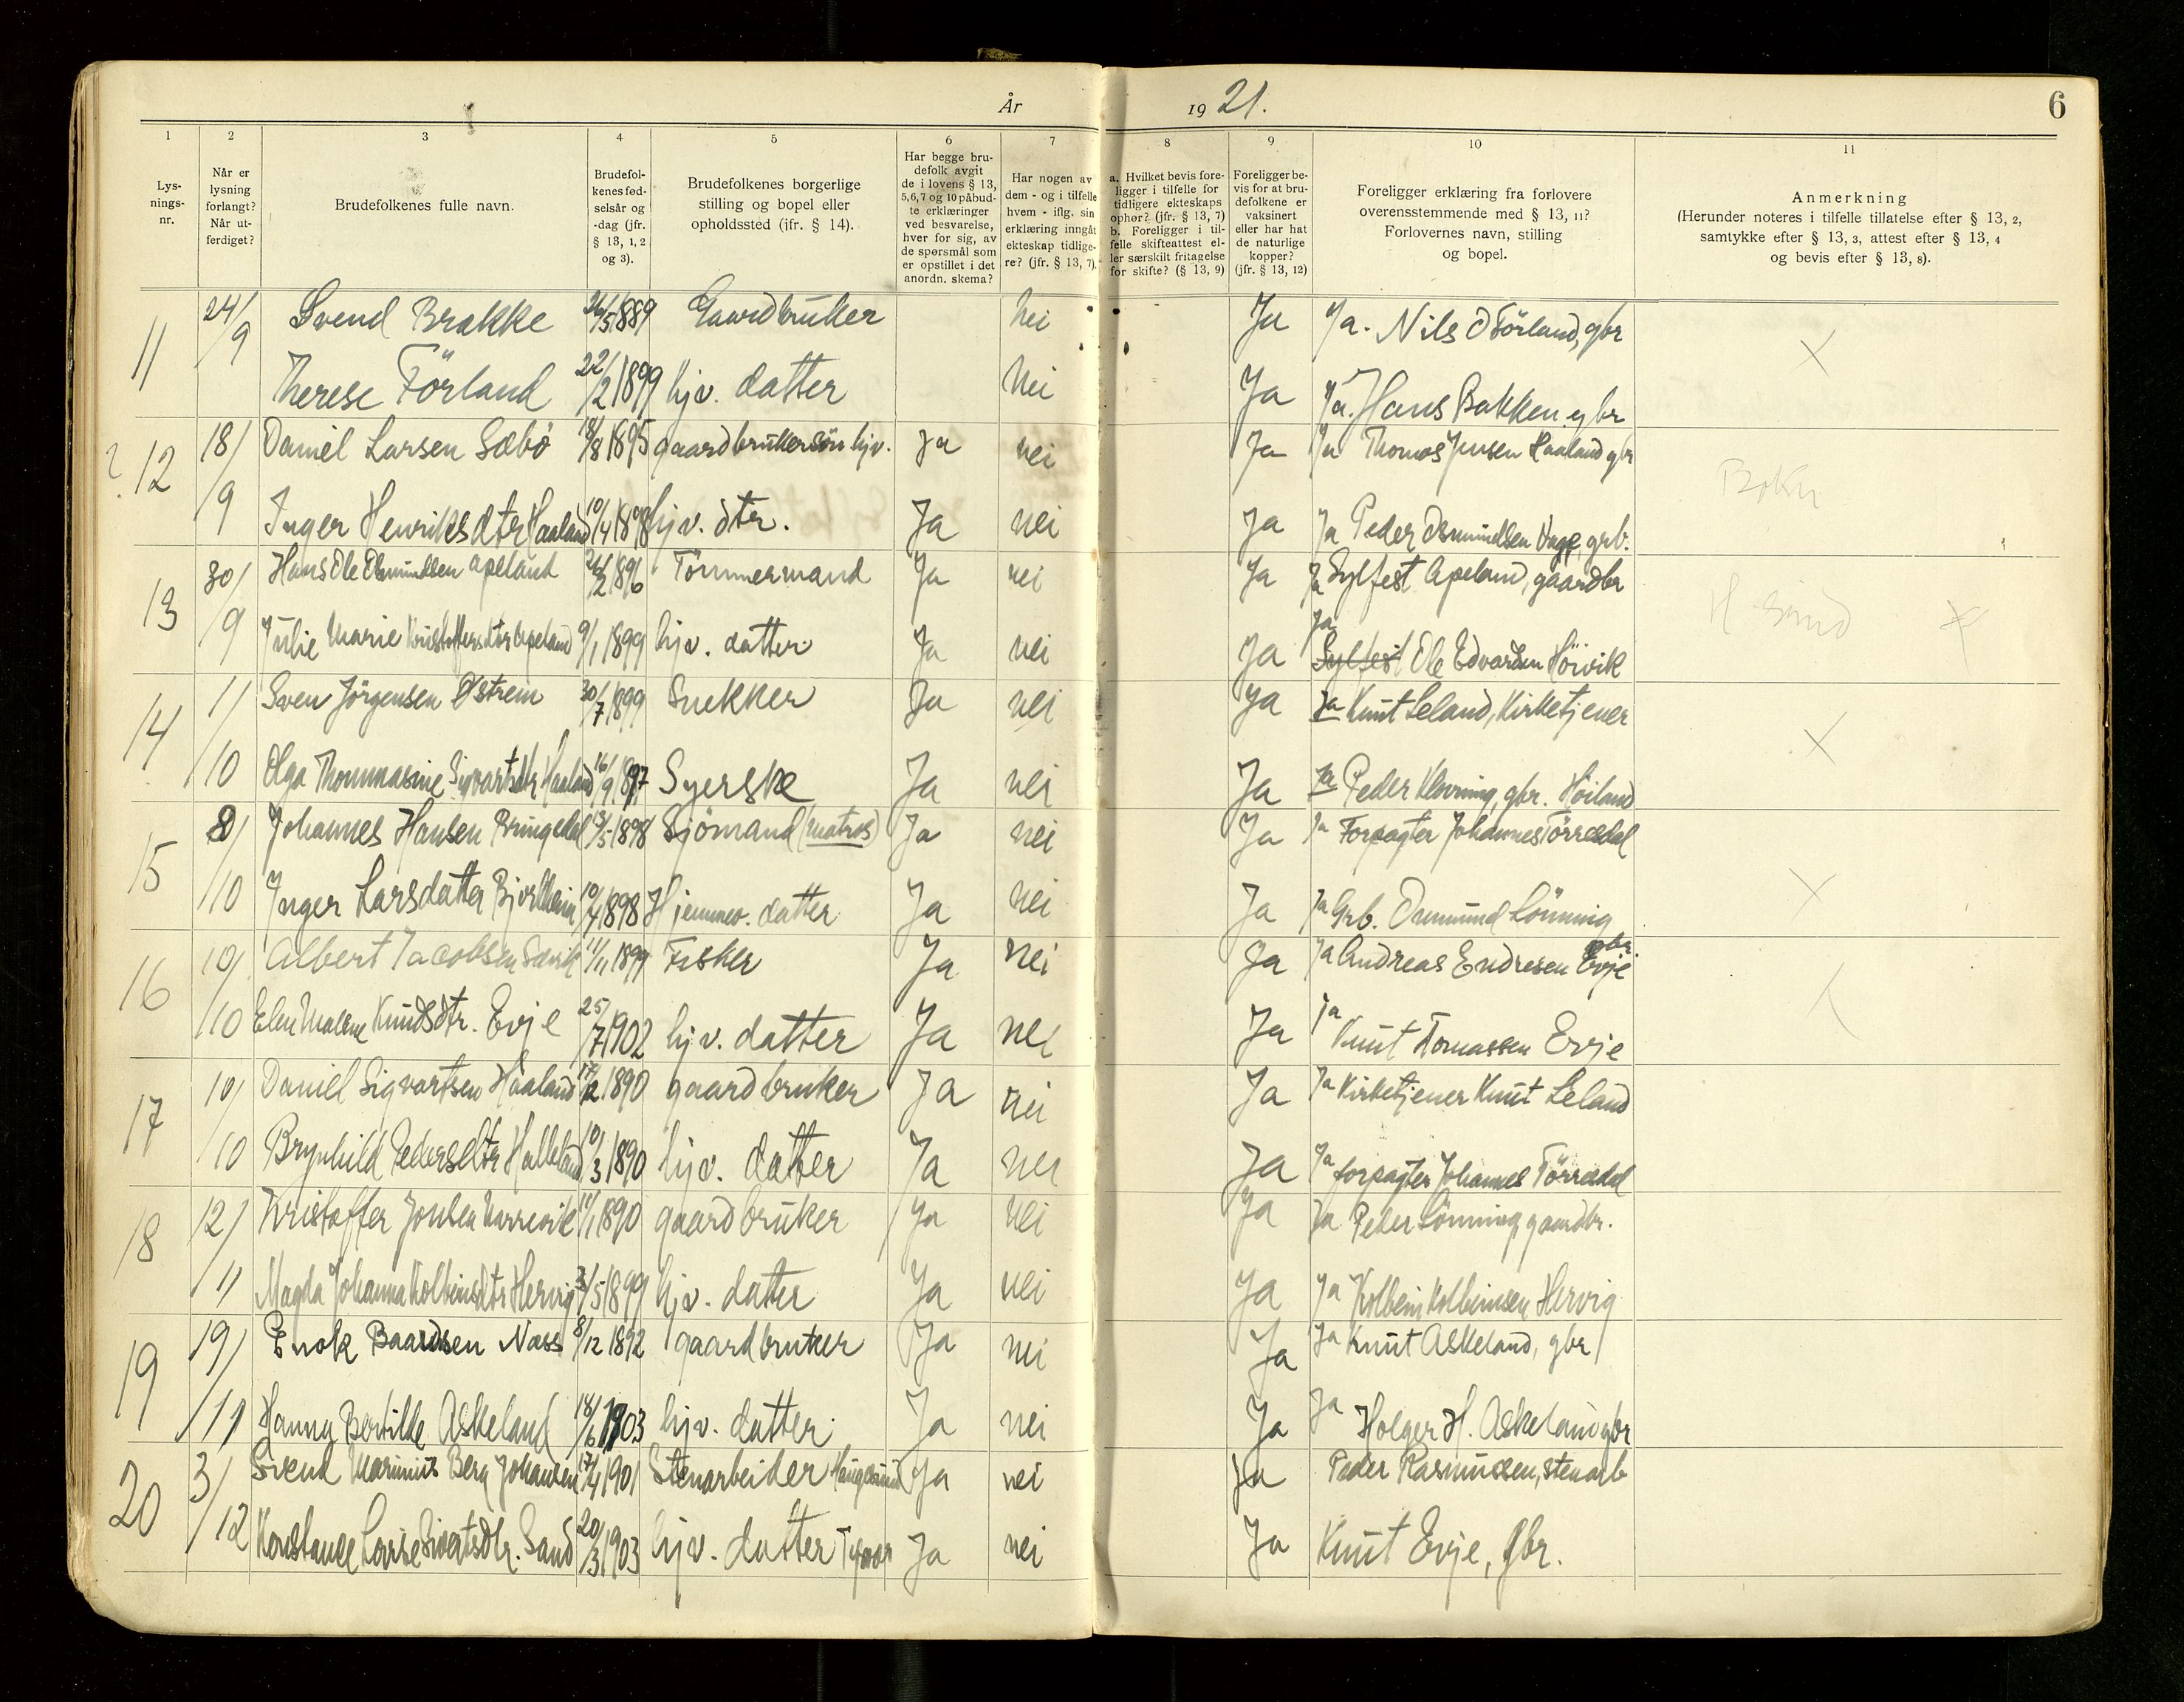 År 1921.
6
1 2 3 4 5 6 7 8 9 10 11
Lysnings-nr.
Når er lysning forlangt? Når utferdiget?
Brudefolkenes fulle navn.
Brudefolkenes fødselsår og -dag (jfr. § 13, 1, 2 og 3).
Brudefolkenes borgerlige stilling og bopel eller opholdssted (jfr. § 14).
Har begge brudefolk avgit de i lovens § 13, 5,6,7 og 10 påbudte erklæringer ved besvarelse, hver for sig, av de spørsmål som er opstillet i det anordn. skema?
Har nogen av dem - og i tilfelle hvem - iflg. sin erklæring inngåt ekteskap tidligere? (jfr. § 13, 7).
a. Hvilket bevis foreligger i tilfelle for tidligere ekteskaps ophør? (jfr. § 13, 7) b. Foreligger i tilfelle skifteattest eller særskilt fritagelse for skifte? (§ 13, 9)
Foreligger bevis for at brudefolkene er vaksinert eller har hat de naturlige kopper? (jfr. § 13, 12)
Foreligger erklæring fra forlovere overensstemmende med § 13, 11? Forlovernes navn, stilling og bopel.
Anmerkning (Herunder noteres i tilfelle tillatelse efter § 13, 2, samtykke efter § 13, 3, attest efter § 13, 4 og bevis efter § 13, 8).
11 24/9 Svend Brakke /5 1889 Gaardbruker nei Ja Ja. Nils O Förland, gbr X
Therese Förland 22/2 1899 hjv. datter Nei Ja Ja. Hans Bakken gbr
? 12 18/9 Daniel Larsen Sæbö 18/8 1895 gaardbrukersön hjv. Ja nei Ja Ja Thomas Jensen Haaland gbr Bokn
Inger Henriksdtr Haaland 10/4 1898 hjv. dtr. Ja nei Ja Ja Peder Osmundsen Vage, grb.
13 30/9 Hans Ole Osmundsen Apeland /2 1896 Tömmermand Ja nei Ja Ja Sylfest Apeland, gaardbr H Sund X
Julie Marie Kristoffersdtr Apeland 9/1 1899 hjv. datter Ja nei Ja Ja Sylfest Ole Edvardsen Hörvik
14 1/10 Sven Jörgensen Østrem 30/7 1899 Snekker Ja nei Ja Ja Knut Leland, Kirketjener X
Olga Thommasine Sigvartsdtr Haaland 16/9 1897 Syerske Ja nei Ja Ja Peder Klovning, gbr. Höiland
15 8/10 Johannes Hansen Bringedal 13/5 1898 Sjömand (matros) Ja nei Ja Ja Forpagter Johannes Törresdal X
Inger Larsdatter Bjortheim 10/4 1898 Hjemmev. datter Ja nei Ja Ja Grb. Osmund Lönning
16 10/10 Albert Jacobsen Sævik 11/11 1899 Fisker Ja nei Ja Ja Andreas Endresen Evje gbr X
Elen Malene Knudsdtr. Evje 25/7 1902 hjv. datter Ja nei Ja ja Knut Tomassen Evje
17 10/10 Daniel Sigvartsen Haaland 17/12 1890 gaardbruker Ja nei Ja Ja Kirketjener Knut Leland
Brynhild Pedersdtr Halleland 10/3 1890 hjv. datter Ja nei Ja Ja forpagter Johannes Törresdal
18 12/11 Kristoffer Jonsen Narrevik 11/1 1890 gaardbruker Ja nei Ja Ja Peder Lönning gaardbr.
Magda Johanna Kolbeinsdtr Hervig /5 1899 hjv. datter Ja nei Ja Ja Kolbein Kolbeinsen Hervig
19 19/11 Enok Baardsen Næss 8/12 1892 gaardbruker Ja nei Ja Ja Knut Askeland, gbr
Hanna Bertilde Askeland 18/6 1903 hjv. datter Ja nei Ja Ja Holger H. Askeland gbr
20 3/12 Svend Marinius Berg Johansen 17/4 1901 Stenarbeider Haugesund Ja nei Ja Peder Rasmussen, stenarb
Konstance Lovise Sivertsdtr. Sand 20/3 1903 hjv. datter Tysvær Ja nei Ja Knut Evje, Gbr.